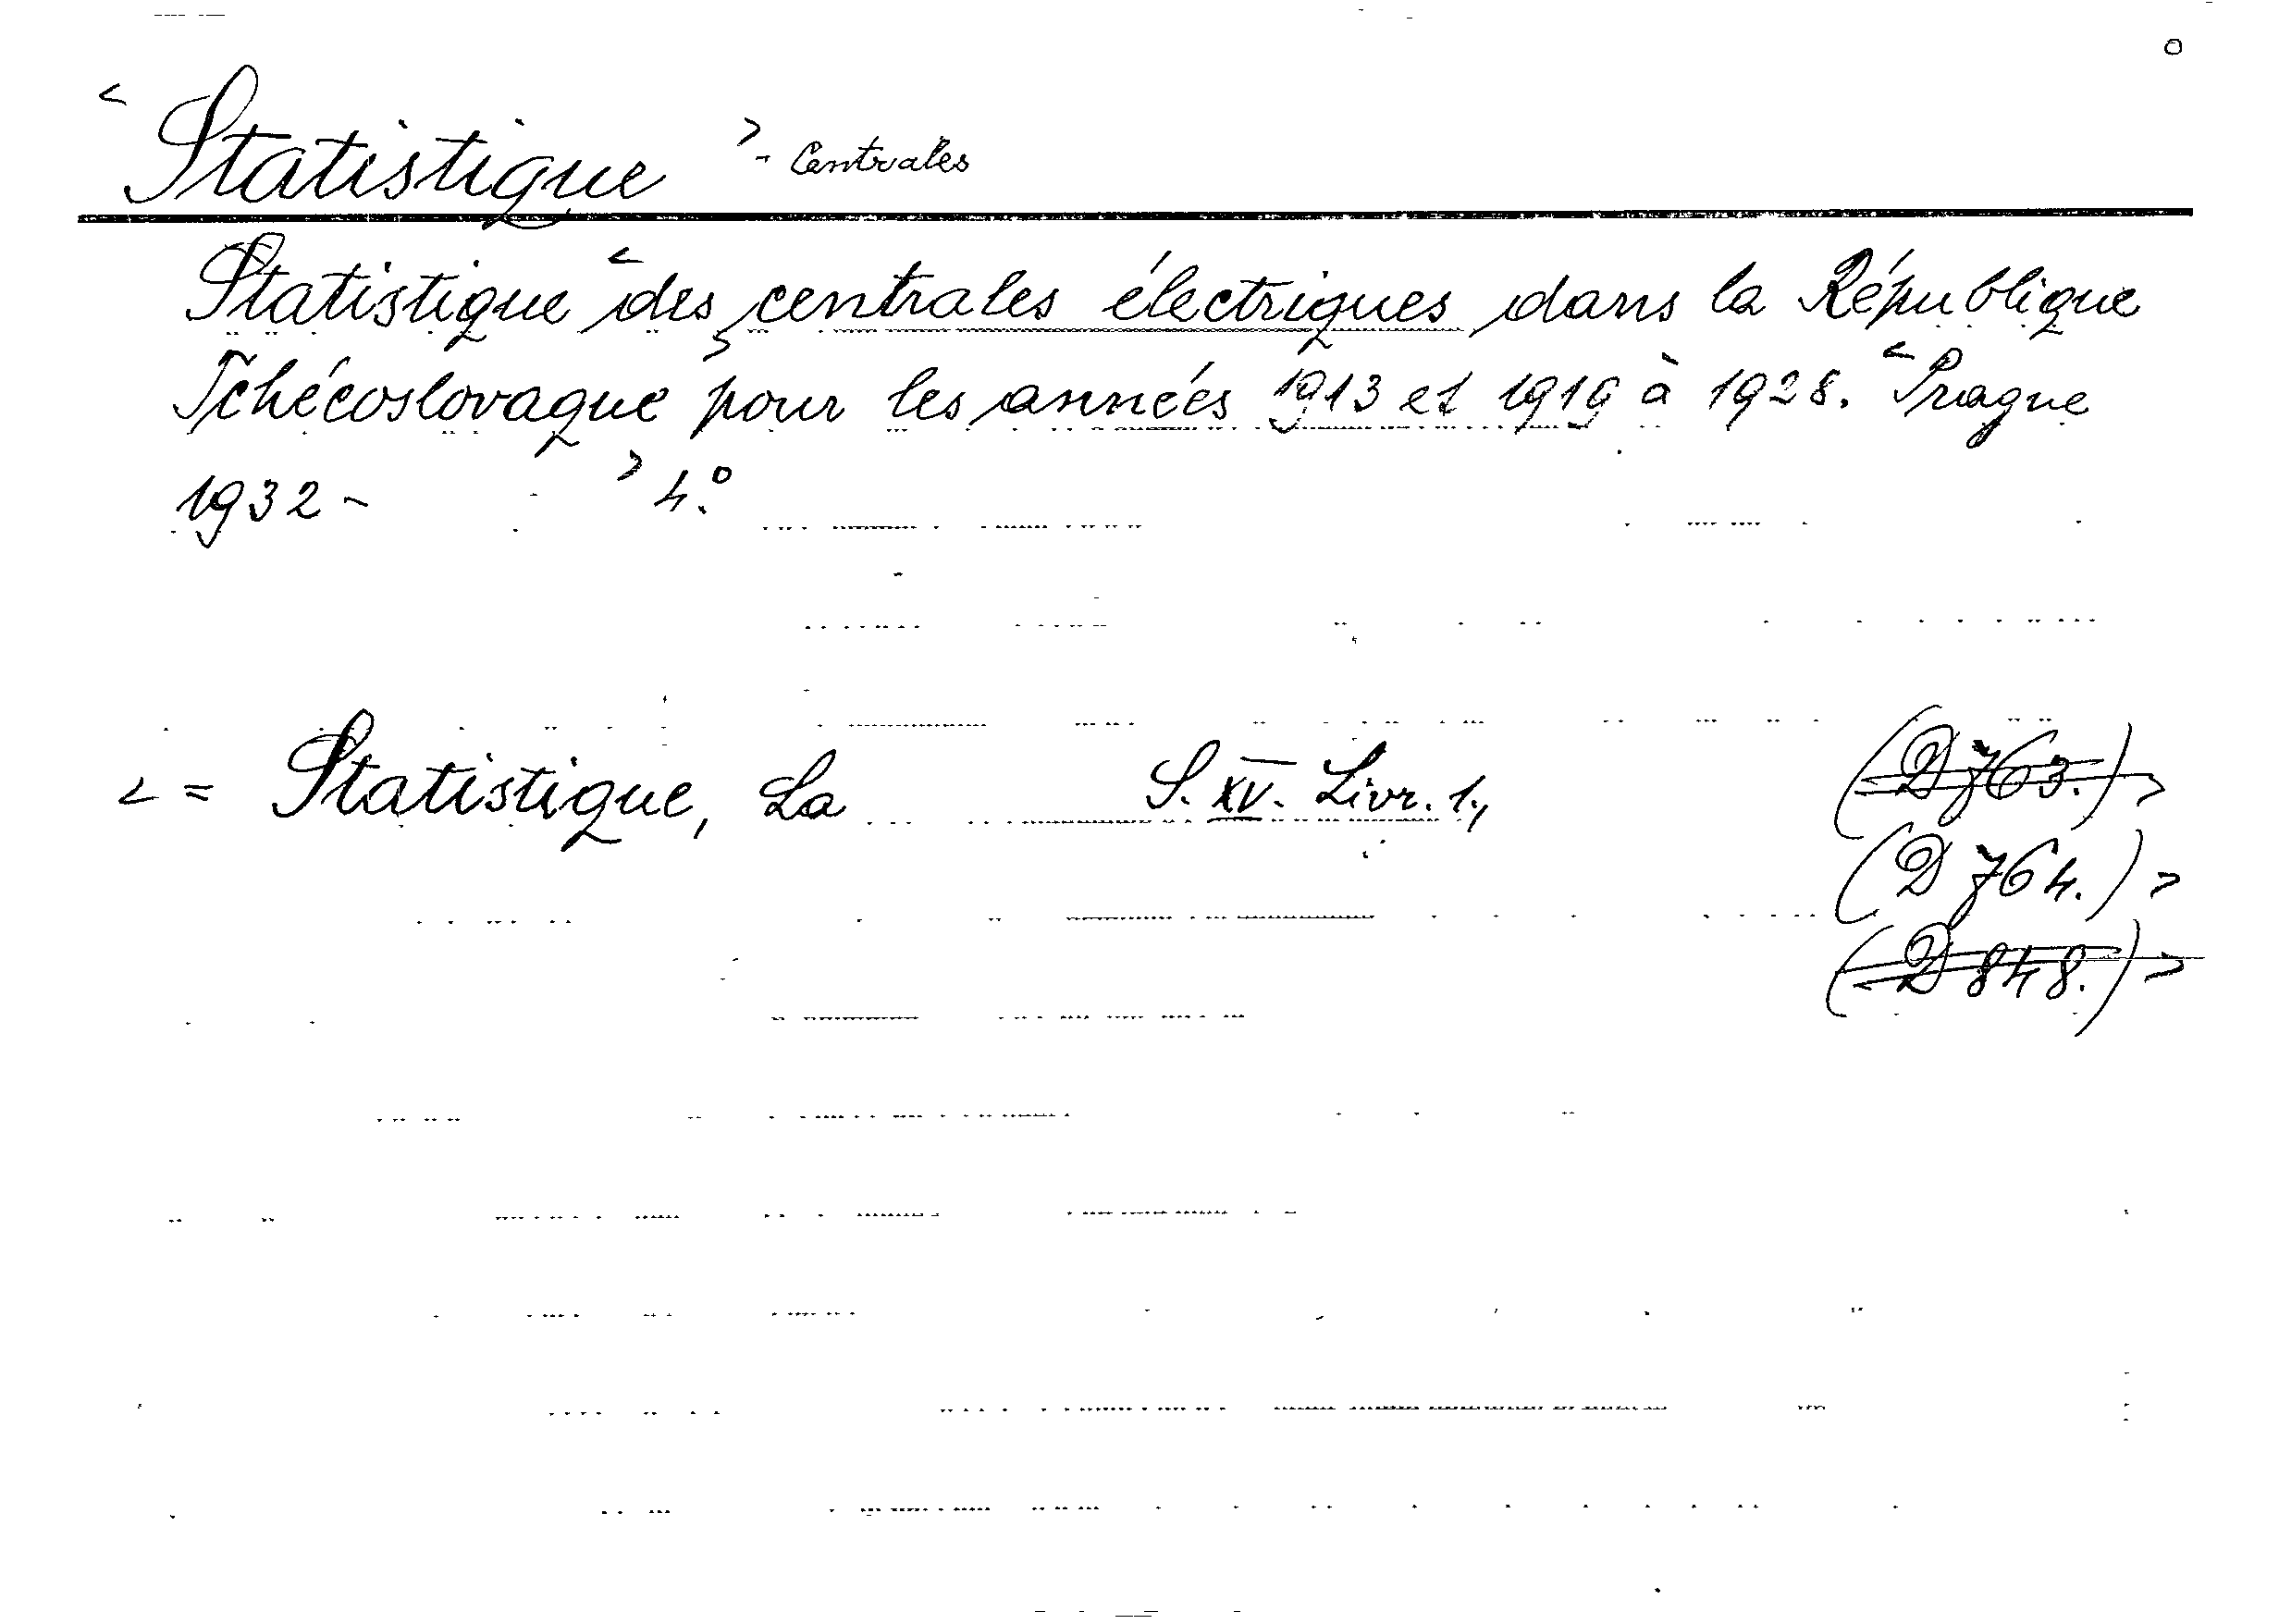 < Statistique > - Centrales
Statistique < des centrales électriques dans la République
Tchécoslovaque > pour les années 1913 et 1919 à 1928. < Prague
1932 - > 4.°
< = Statistique, La S. XV. Livr. 1., (D 763.) >
(D 764.) >
(D 848.) >